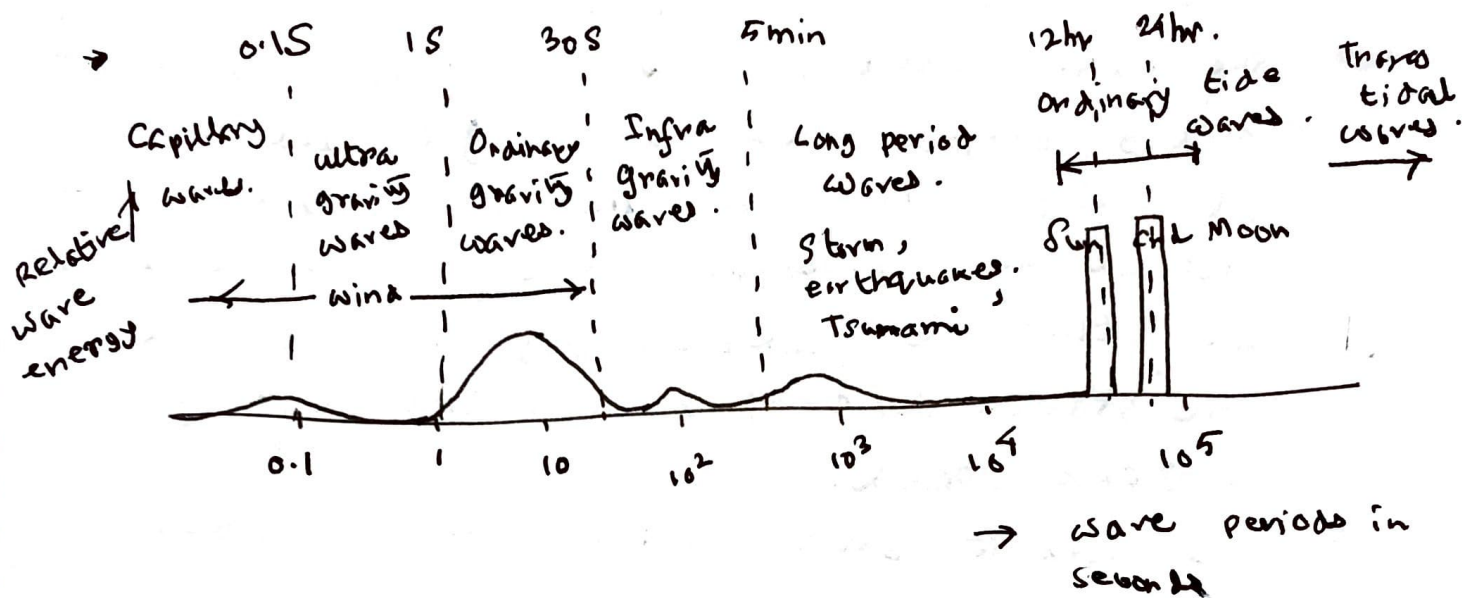 → 0.1S 1S 30S 5min 12hr 24hr.
Capillary
waves.
ultra
gravity
waves
Ordinary
gravity
waves.
Infra
gravity
waves.
Long period
waves.
Storm,
earthquakes,
Tsunami
ordinary tide
waves.
Trans
tidal
waves.
Sun and Moon
Relative
wave
energy
← wind →
0.1 1 10 10² 10³ 10⁴ 10⁵
→ wave periods in
seconds